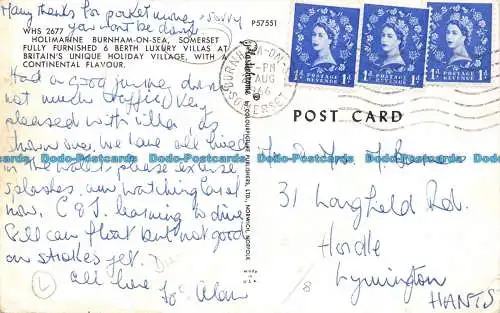 Many thanks for pocket money
you wont be done
WHS 2677
P57551
HOLIMARINE BURNHAM-ON-SEA, SOMERSET
FULLY FURNISHED 6 BERTH LUXURY VILLAS AT
BRITAIN'S UNIQUE HOLIDAY VILLAGE, WITH A
CONTINENTAL FLAVOUR.
Had a good journey down
not much traffic. Very
pleased with villa, as
shown over. We have all
in the water, please excuse
splashes. am watching Carol
now, C & J. learning to dive
Gill can float but not good
on strokes yet.
All love Jo Alan
BY COLOURPICTURE PUBLISHERS, LTD., NORWICH, NORFOLK
MADE IN U.S.A.
BURNHAM-ON-SEA
AUG
1966
SOMERSET
POSTAGE REVENUE
1d 1d
POSTAGE REVENUE
1d 1d
POSTAGE REVENUE
1d 1d
POST CARD
31 Longfield Rd.
Hordle
Lymington
HANTS
Postcards-Postcards